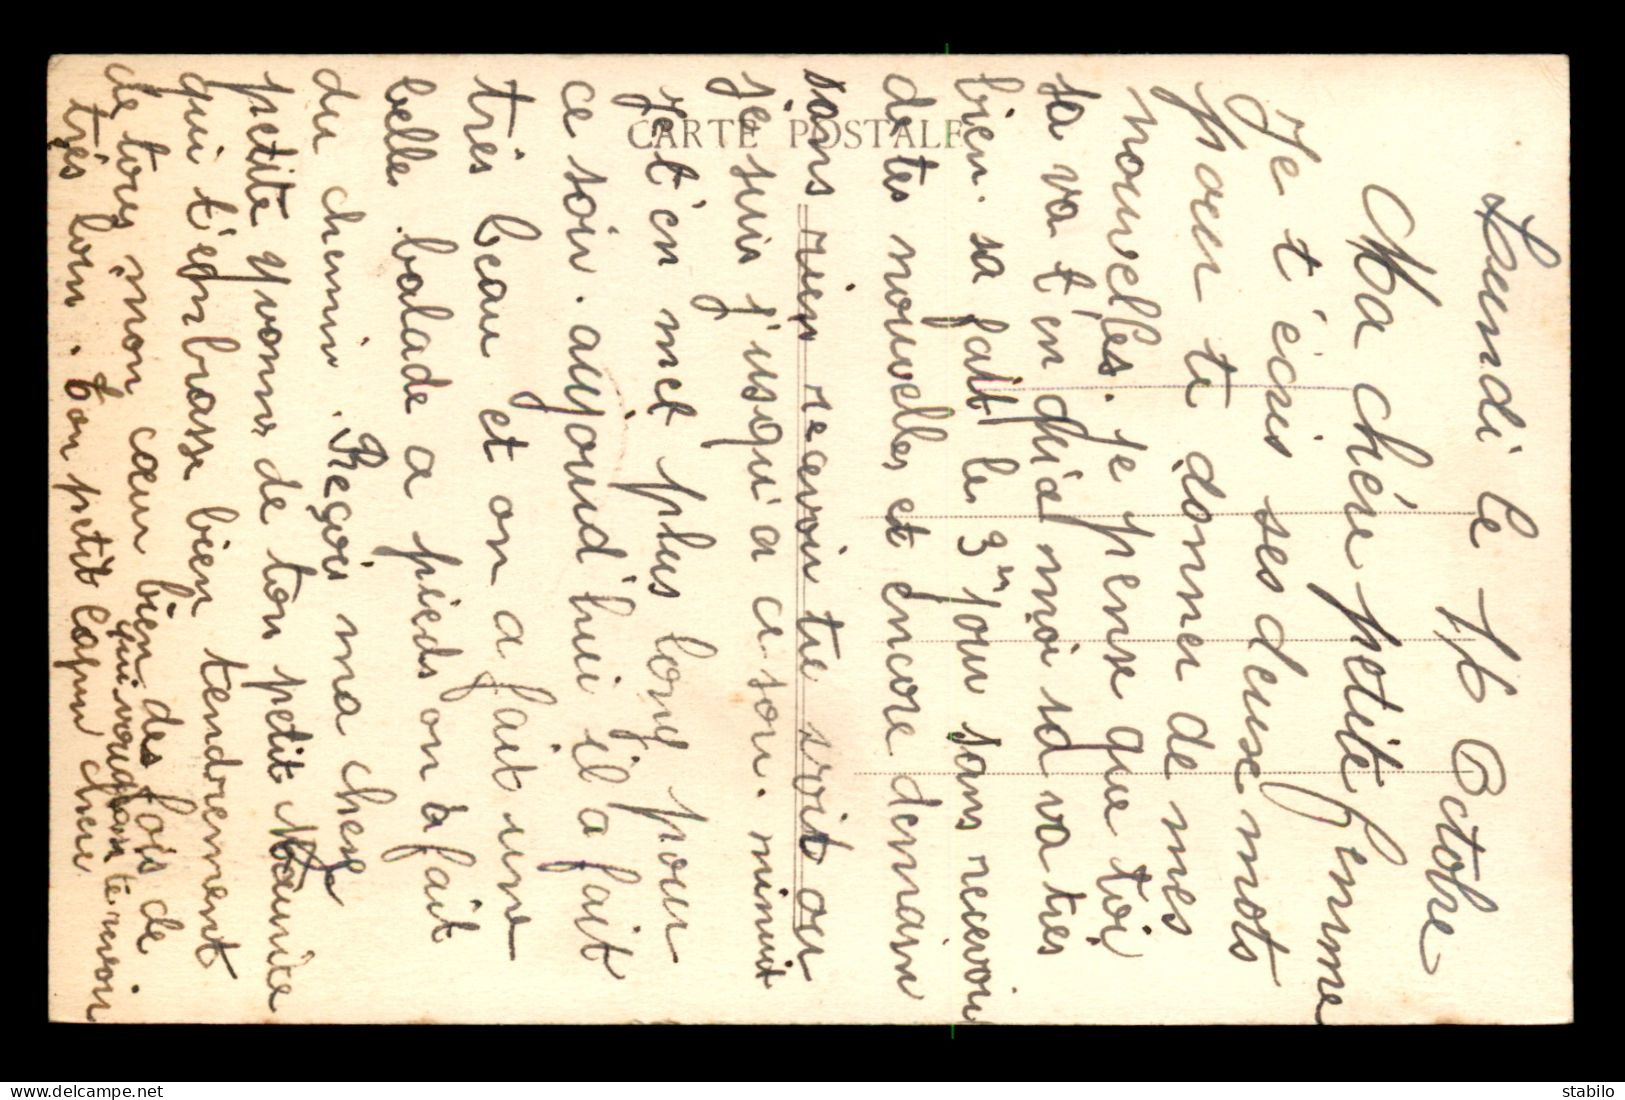 Lundi le 16 Octobre
Ma chére petite femme
Je t'écris ses deuse mots
pour te donner de mes
nouvelles. je pense que toi
sa va t'en qu'a moi sa va tres
bien. sa fait le 3m jour sans recevoir
de tes nouvelles et encore demain
sans rien recevoir tu
je suis j'usqu'a ce soir. minuit
je t'en met plus long pour
ce soir. aujourd'hui il a fait
très beau et on a fait une
belle balade a pieds on a fait
du chemin. Reçois ma cheré
petite yvonne de ton petit
qui t'embrasse bien tendrement
de tous mon cœur bien des fois de
très loin. ton petit lapin cheri
qui voudrais te revoir
CARTE POSTALE
stabilo